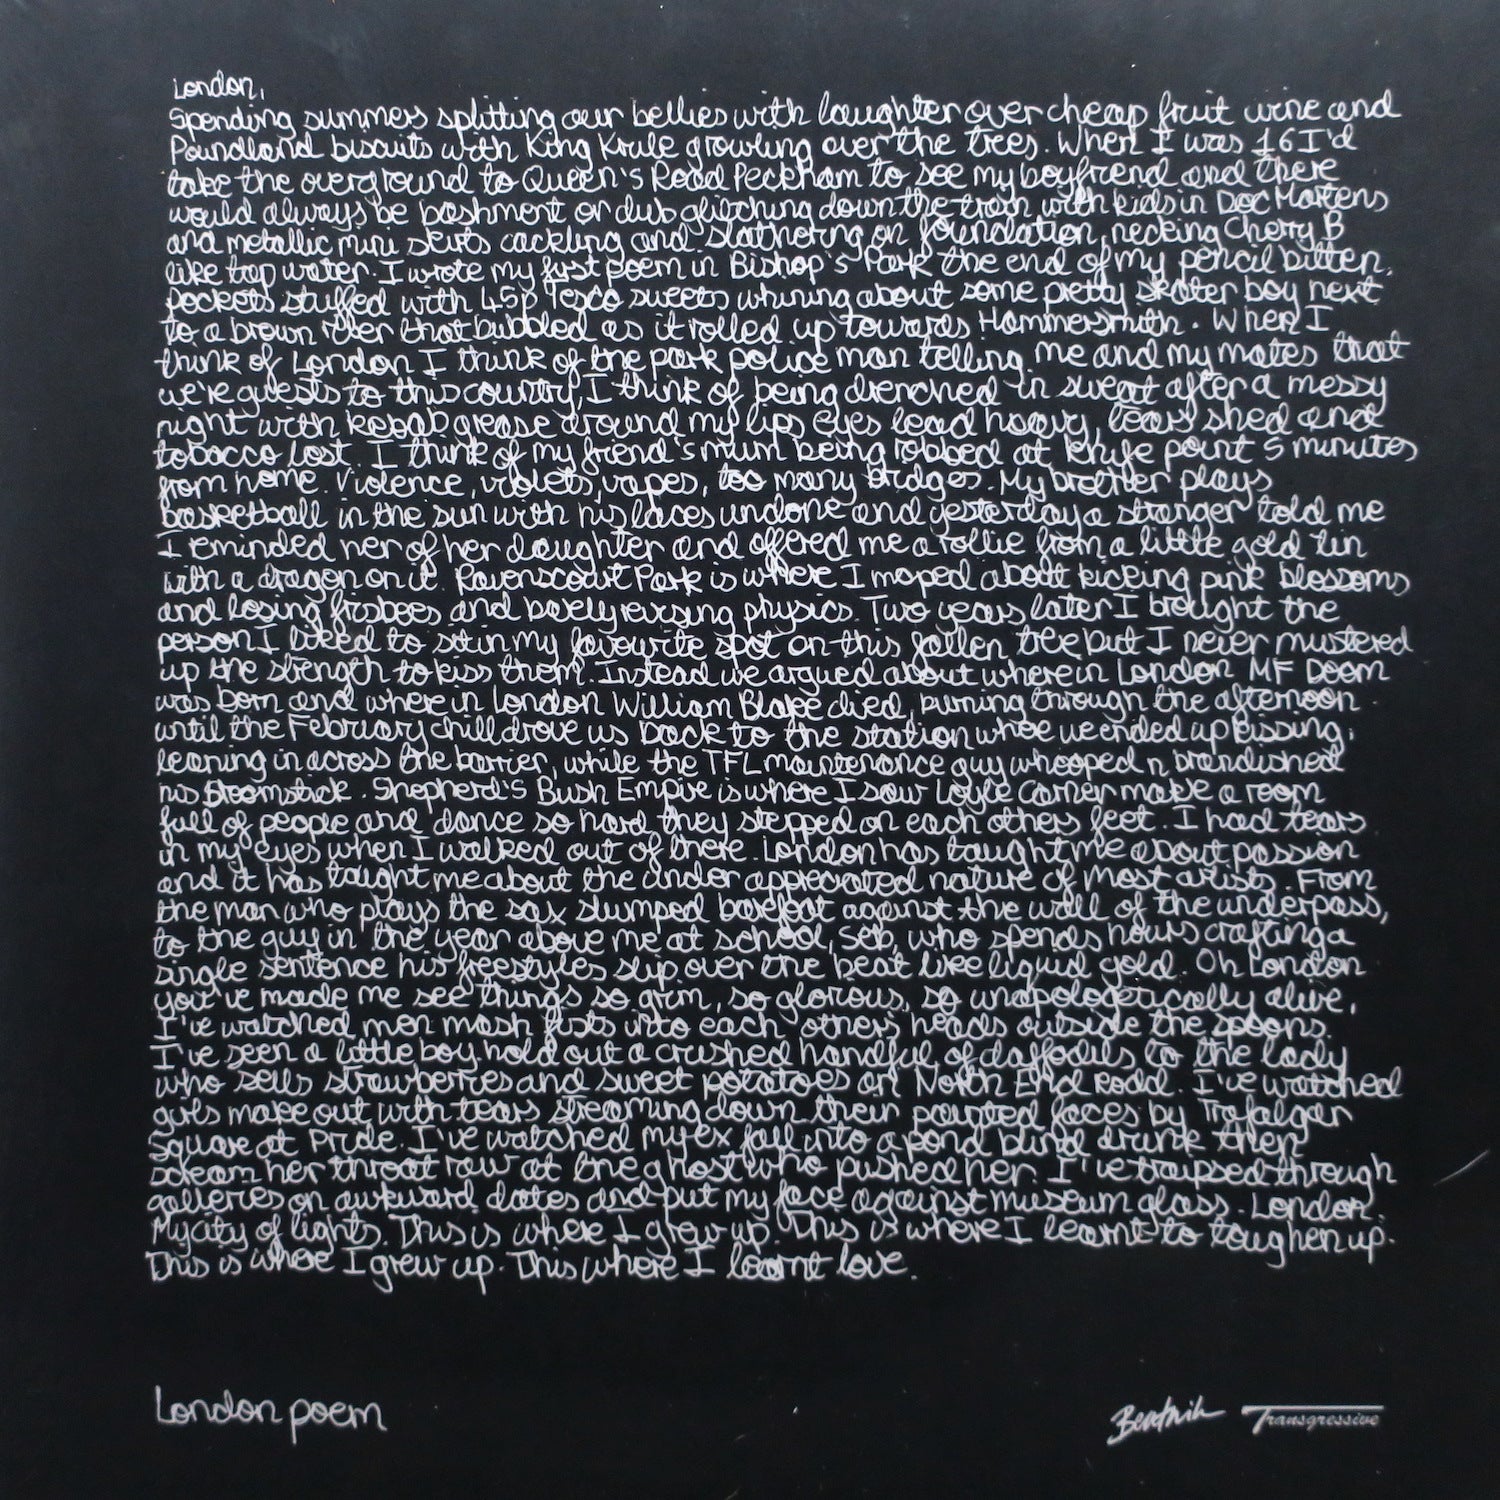 London,
Spending summers splitting our bellies with laughter over cheap fruit wine and
Poundland biscuits with King Krule growling over the trees. When I was 16 I'd
take the overground to Queen's Road Peckham to see my boyfriend and there
would always be bashment or dub glitching down the train with kids in Doc Martens
and metallic mini skirts cackling and slathering on foundation, necking Cherry B
like tap water. I wrote my first poem in Bishop's Park the end of my pencil bitten,
pockets stuffed with 45p Tesco sweets whining about some pretty skater boy next
to a brown river that bubbled as it rolled up towards Hammersmith. When I
think of London I think of the park police man telling me and my mates that
we're guests to this country, I think of being drenched in sweat after a messy
night with kebab grease around my lips eyes lead heavy, tears shed and
tobacco lost. I think of my friend's mum being robbed at knife point 5 minutes
from home. Violence, violets, vapes, too many bridges. My brother plays
basketball in the sun with his laces undone and yesterday a stranger told me
I reminded her of her daughter and offered me a rollie from a little gold tin
with a dragon on it. Ravenscourt Park is where I moped about kicking pink blossoms
and losing frisbees and barely revising physics. Two years later I brought the
person I liked to sat in my favourite spot on this fallen tree but I never mustered
up the strength to kiss them. Instead we argued about where in London MF Doom
was born and where in London William Blake died, burning through the afternoon
until the February chill drove us back to the station where we ended up kissing,
leaning in across the barrier, while the TFL maintenance guy whooped n brandished
his broomstick. Shepherd's Bush Empire is where I saw Loyle Carner make a room
full of people and dance so hard they stepped on each others feet. I had tears
in my eyes when I walked out of there. London has taught me about passion
and it has taught me about the under appreciated nature of most artists. From
the man who plays the sax slumped barefoot against the wall of the underpass,
to the guy in the year above me at school, Seb, who spends hours crafting a
single sentence his freestyles slip over the beat like liquid gold. Oh London
you've made me see things so grim, so glorous, so unapologetically alive.
I've watched men mash fists into each others heads outside the spoons.
I've seen a little boy hold out a crushed handful of daffodils to the lady
who sells strawberries and sweet potatoes on North End Road. I've watched
girls make out with tears streaming down their painted faces by Trafalgar
Square at Pride. I've watched my ex fall into a pond blind drunk then
scream her throat raw at the ghost who pushed her. I've traipsed through
galleries on awkward dates and put my face against museum glass. London.
My city of lights. This is where I grew up. This is where I learnt to toughen up.
This is where I grew up. This where I learnt love.
London poem
Beatnik Transgressive